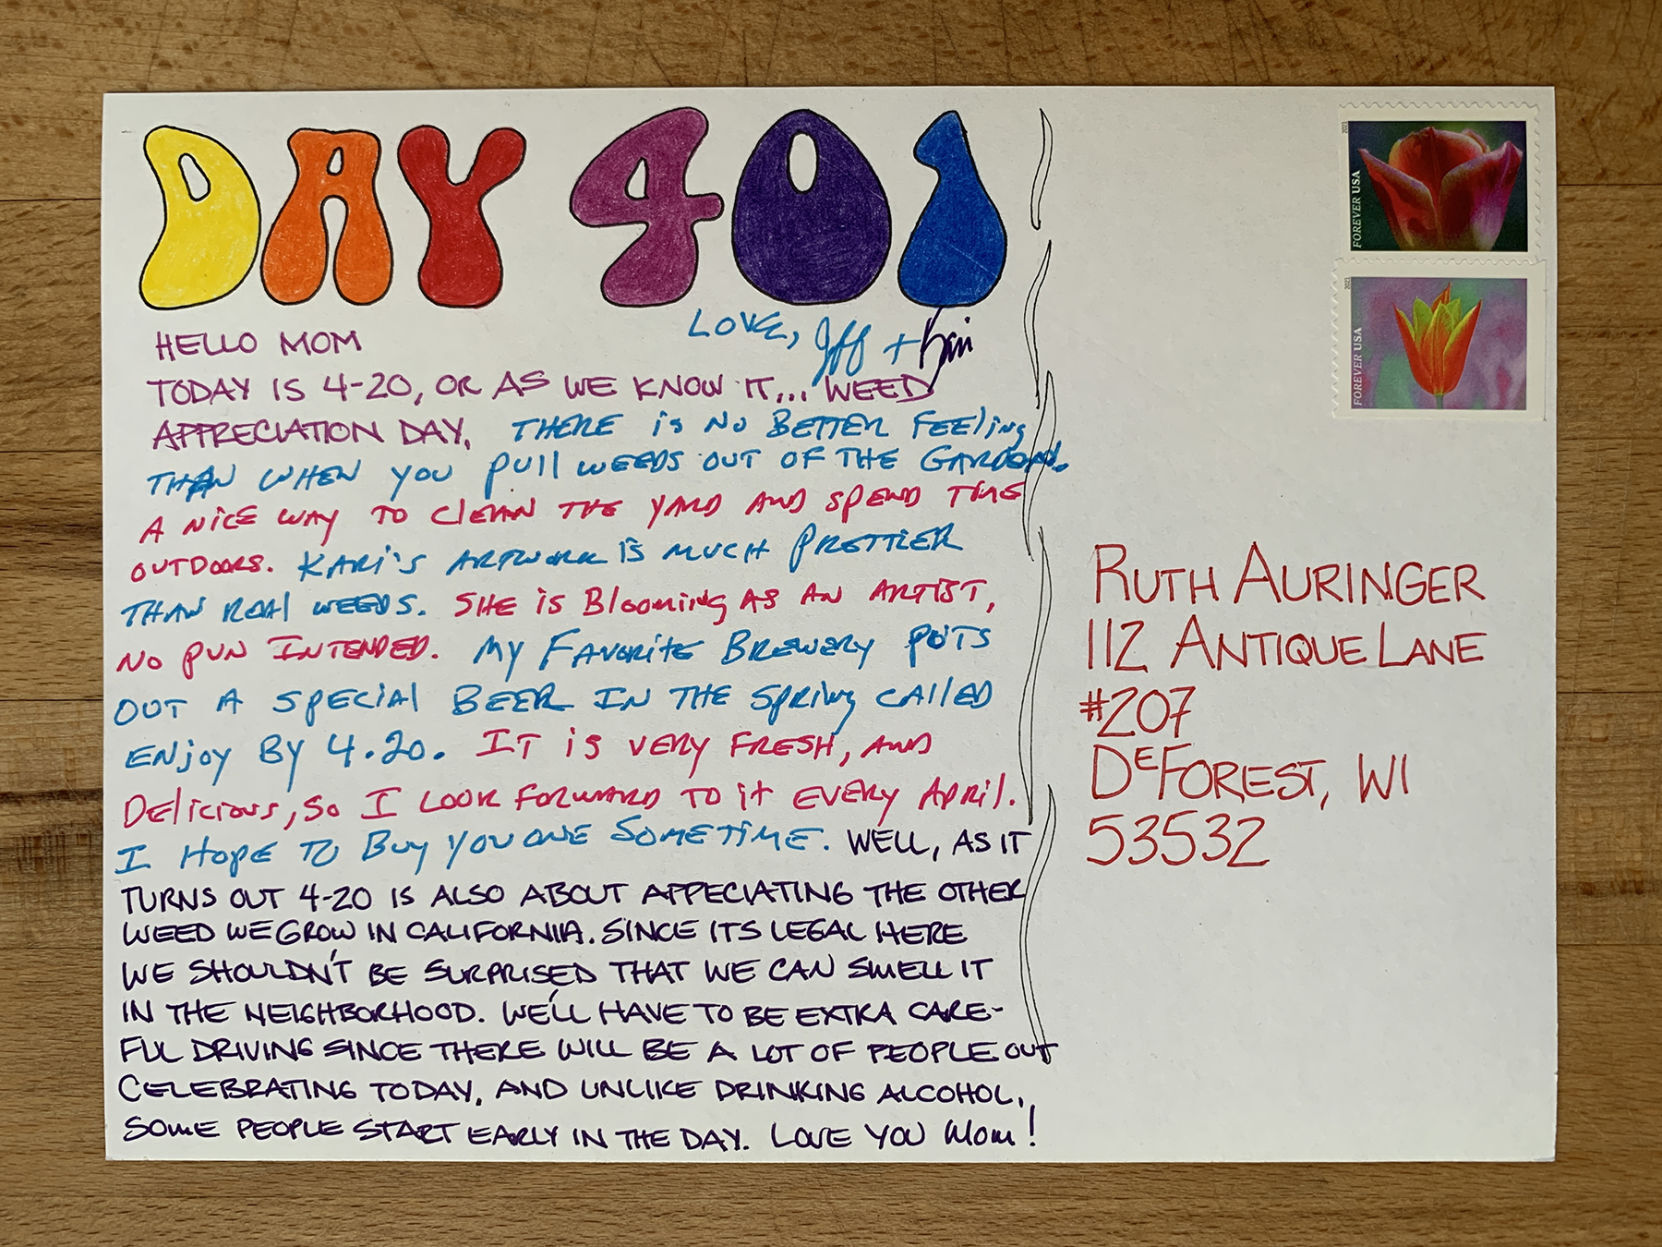 DAY 401
LOVE, Jeff + Kari
HELLO MOM
TODAY IS 4-20, OR AS WE KNOW IT... WEED
APPRECIATION DAY. THERE is NO BETTER FEELing
THAN WHEN YOU pull WEEDS OUT OF THE GARDEN.
A NICE WAY TO CLEAN THE YARD AND SPEND TIME
OUTDOORS. KARI'S ARTWORK IS MUCH PRETTIER
THAN REAL WEEDS. SHE is Blooming AS AN ARTIST,
NO PUN INTENDED. MY FAVORITE BREWERY PUTS
OUT A SPECIAL BEER IN THE SPRING CALLED
ENJOY BY 4.20. IT is VERY FRESH, AND
Delicious, SO I LOOK FORWARD TO it EVERY APRIL.
I HOPE TO BUY YOU ONE SOMETIME. WELL, AS IT
TURNS OUT 4-20 IS ALSO ABOUT APPECIATING THE OTHER
WEED WE GROW IN CALIFORNIA. SINCE ITS LEGAL HERE
WE SHOULDN'T BE SURPRISED THAT WE CAN SMELL IT
IN THE NEIGHBORHOOD. WE'LL HAVE TO BE EXTRA CARE-
FUL DRIVING SINCE THERE WILL BE A LOT OF PEOPLE OUT
CELEBRATING TODAY, AND UNLIKE DRINKING ALCOHOL,
SOME PEOPLE START EARLY IN THE DAY. LOVE YOU MOM!
2021
FOREVER USA
2021
FOREVER USA
RUTH AURINGER
112 ANTIQUE LANE
#207
DEFOREST, WI
53532